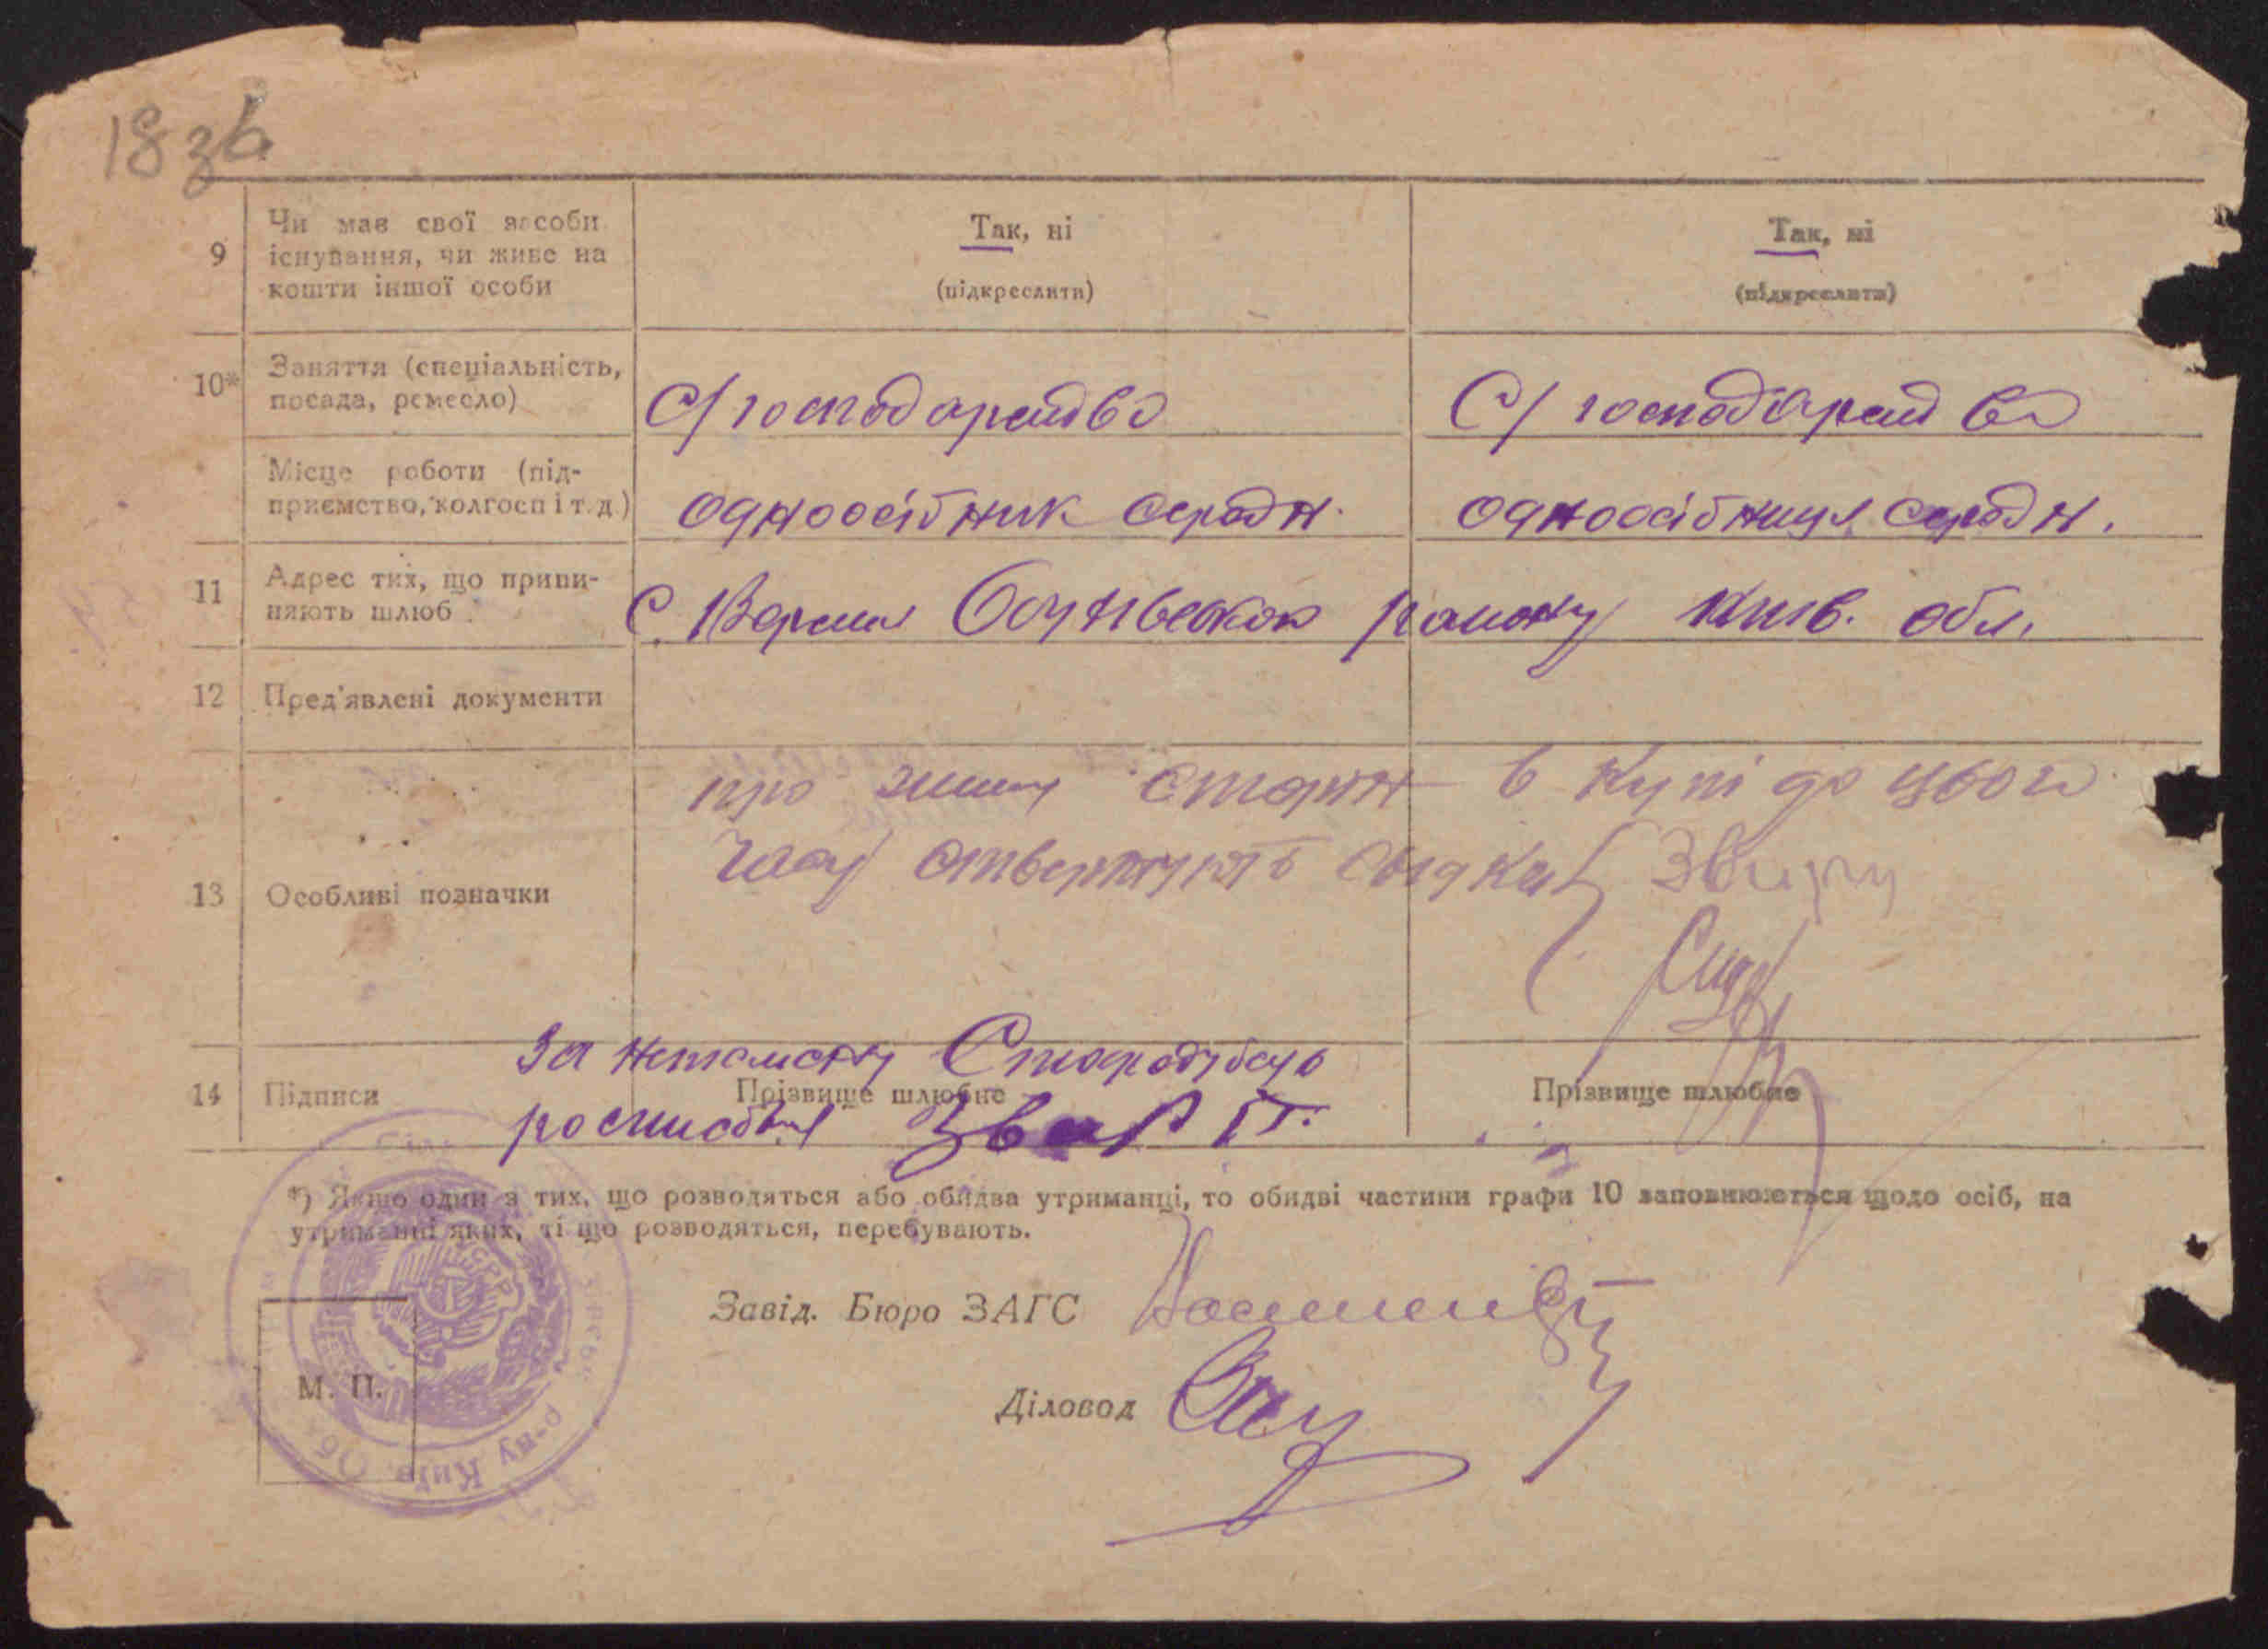 18 зв
9
Чи має свої засоби існування, чи живе на кошти іншої особи
Так, ні
(підкреслити)
Так, ні
(підкреслити)
10*
Заняття (спеціальність, посада, ремесло)
С/господарство
С/господарство
Місце роботи (підприємство, колгосп і т. д.)
одноосібник середн.
одноосібниця середн.
11
Адрес тих, що припиняють шлюб
С. району Київ. обл.
12
Пред'явлені документи
13
Особливі позначки
про сторін в купі до цього
часу стверджують свідки
14
Підписи
За неписьмену Стародубець
росписався
Прізвище шлюбне
Прізвище шлюбне
*) Якщо один з тих, що розводяться або обидва утриманці, то обидві частини графи 10 заповнюються щодо осіб, на
утриманні яких, ті що розводяться, перебувають.
Завід. Бюро ЗАГС
Діловод
М. П.
УСРР
р-ну Київ. Об